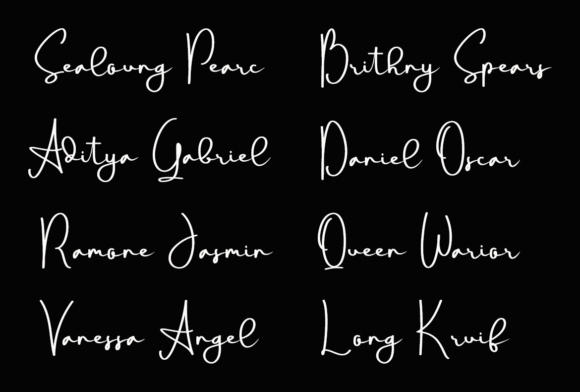 Sealovng Pearc
Brithny Spears
Aditya Gabriel
Daniel Oscar
Ramone Jasmin
Queen Warior
Vanessa Angel
Long Kruif